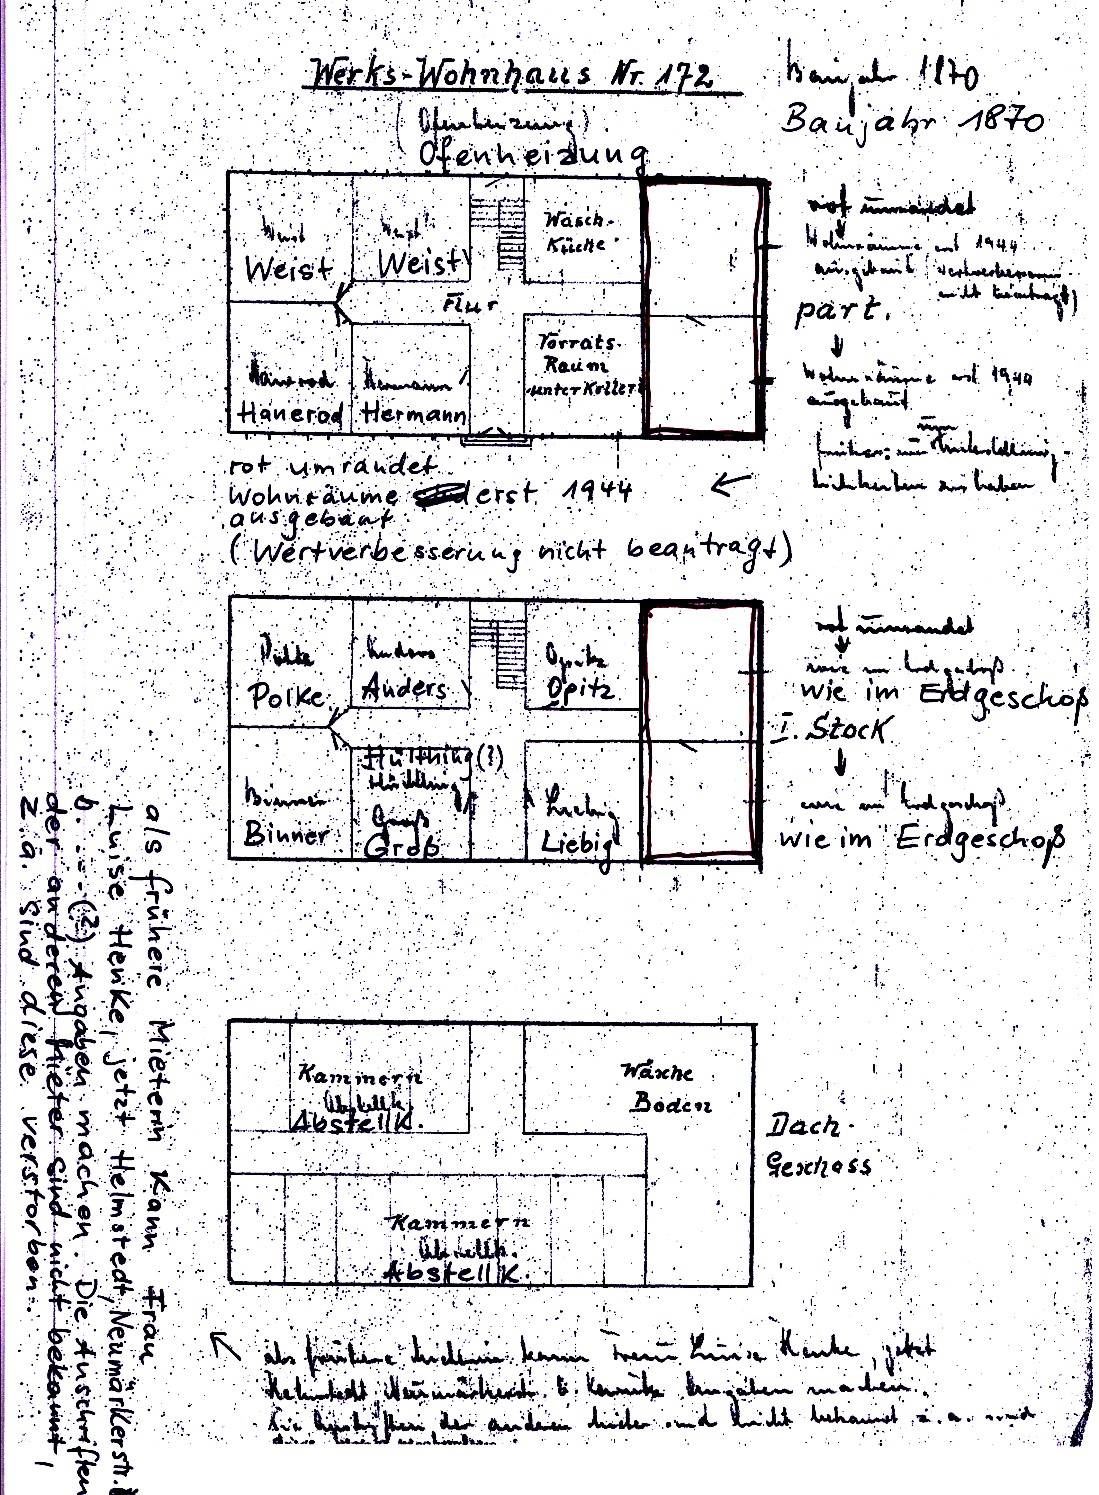 Werks-Wohnhaus Nr. 172
Baujahr 1870
Baujahr 1870
(Ofenheizung)
Ofenheizung
Weist
Weist
Weist
Weist
Wasch-
Küche
Flur
Hanerod
Hanerod
Hermann
Hermann
Vorrats-
Raum
unterkellert
rot umrandet
Wohnräume erst 1944
ausgebaut (Wertverbesserung
nicht beantragt)
part.
Wohnräume erst 1944
ausgebaut
früher: nur
rot umrandet
Wohnräume erst 1944
ausgebaut
(Wertverbesserung nicht beantragt)
Polke
Polke
Anders
Anders
Opitz
Opitz
Binner
Binner
Hülthing(?)
Groß
Groß
Liebig
Liebig
rot umrandet
wie im Erdgeschoß
wie im Erdgeschoß
I. Stock
wie im Erdgeschoß
wie im Erdgeschoß
Kammern
Abstellk.
Abstellk.
Wäsche
Boden
Dach-
Geschoss
Kammern
Abstellk.
Abstellk.
als frühere Mieterin kann Frau Luise Henke, jetzt
Helmstedt, Neumärkerstr. 6 Angaben machen.
Die Anschriften der anderen Mieter sind nicht bekannt z.a. sind
diese verstorben.
als frühere Mieterin kann Frau
Luise Henke, jetzt Helmstedt, Neumärkerstr.
6. ...(?) Angaben machen. Die Anschriften
der anderen Mieter sind nicht bekannt,
z.a. sind diese verstorben.